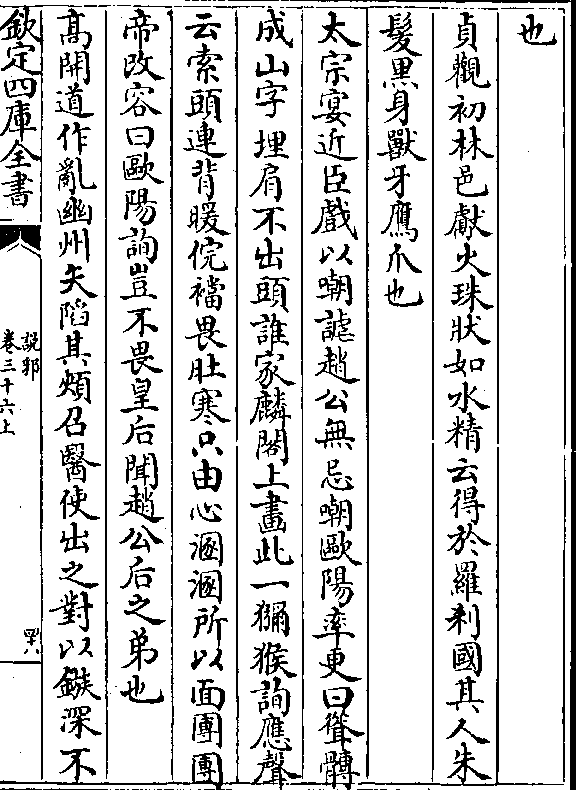 也
貞觀初林邑獻火珠狀如水精云得於羅刹國其人朱
髮黑身獸牙鷹爪也
太宗宴近臣戲以嘲謔趙公無忌嘲歐陽率更曰聳髆
成山字埋肩不出頭誰家麟閣上畫此一獼猴詢應聲
云索頭連背暖俒襠畏肚寒只由心溷溷所以面團團
帝改容曰歐陽詢豈不畏皇后聞趙公后之弟也
髙開道作亂幽州矢陷其頰召醫使出之對以鏃深不
欽定四庫全書
說郛
卷三十六上
四十八